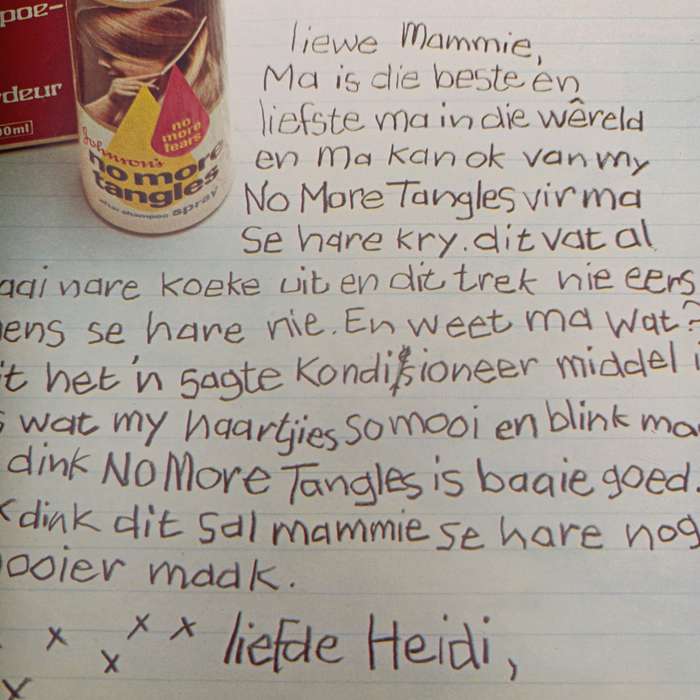 poe-
deur
00ml
no
more
tears
Johnson's
no more
tangles
after shampoo spray
liewe Mammie,
Ma is die beste en
liefste ma in die wêreld
en Ma kan ok van my
No More Tangles vir ma
se hare kry. dit vat al
aai nare koeke uit en dit trek nie eers
ens se hare nie. En weet ma wat?
t het 'n sagte kondisioneer middel i
s wat my haartjies so mooi en blink ma
dink No More Tangles is baaie goed.
k dink dit sal mammie se hare nog
ooier maak.
x x x x
liefde Heidi,
x